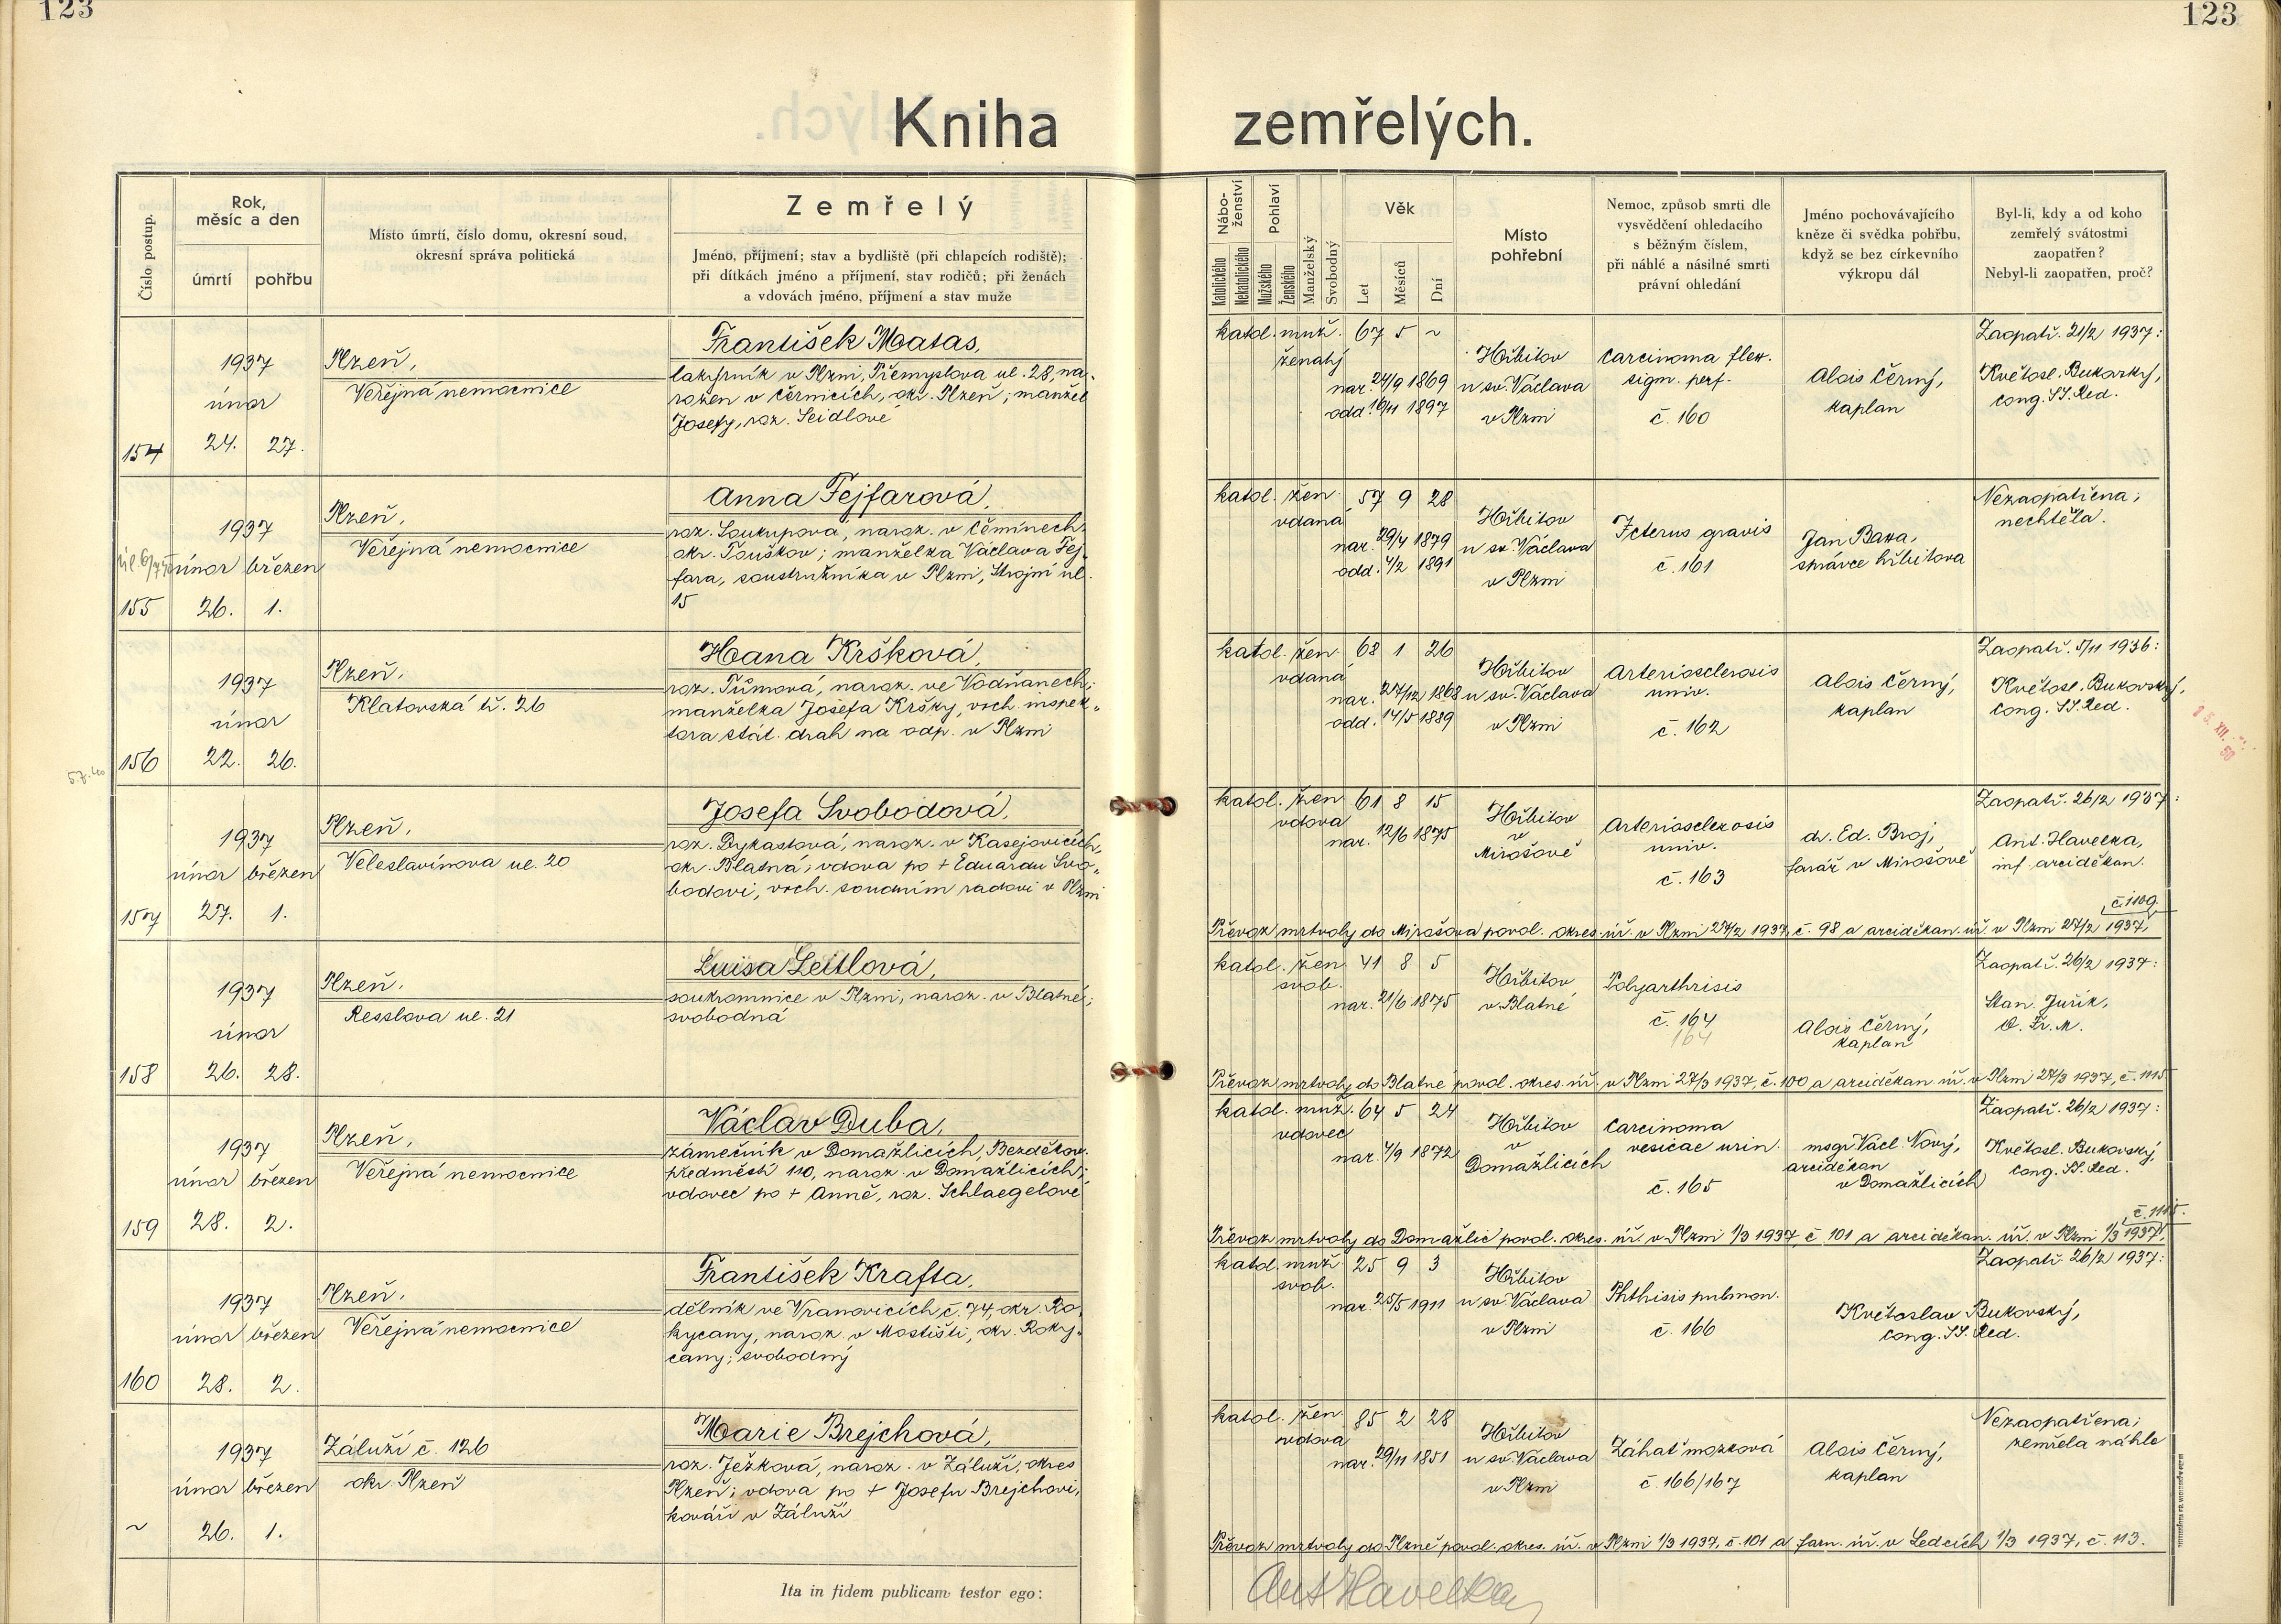 123
123
Kniha zemřelých.
Číslo postup.
Rok,
měsíc a den
úmrtí
pohřbu
Místo úmrtí, číslo domu, okresní soud,
okresní správa politická
Zemřelý
Jméno, příjmení; stav a bydliště (při chlapcích rodiště);
při dítkách jméno a příjmení, stav rodičů; při ženách
a vdovách jméno, příjmení a stav muže
Nábo-
ženství
Katolického
Nekatolického
Pohlaví
Mužského
Ženského
Manželský
Svobodný
Věk
Let
Měsíců
Dní
Místo
pohřební
Nemoc, způsob smrti dle
vysvědčení ohledacího
s běžným číslem,
při náhlé a násilné smrti
právní ohledání
Jméno pochovávajícího
kněze či svědka pohřbu,
když se bez církevního
výkropu dál
Byl-li, kdy a od koho
zemřelý svátostmi
zaopatřen?
Nebyl-li zaopatřen, proč?
154
1937
únor
24. 27.
Plzeň,
Veřejná nemocnice
František Matas,
lakýrník v Plzni, Přemyslova ul. 28, na-
rozen v Černicích, okr. Plzeň; manžel
Josefy, roz. Seidlové
katol. muž. 67 5 ~
ženatý
nar. 24/9 1869
odd. 16/11 1897
Hřbitov
u sv. Václava
v Plzni
Carcinoma flex.
sigm. perf.
č. 160
Alois Černý,
kaplan
Zaopatř. 21/2 1937:
Květosl. Bukovský,
Cong. SS. Red.
155
1937
únor březen
26. 1.
Plzeň,
Veřejná nemocnice
Anna Fejfarová,
roz. Soukupová, naroz. v Čemínech,
okr. Touškov; manželka Václava Fej-
fara, soustružníka v Plzni, Strojní ul.
15
katol. žen. 57 9 28
vdaná
nar. 29/4 1879
odd. 4/2 1891
Hřbitov
u sv. Václava
v Plzni
Icterus gravis
č. 161
Jan Baxa,
správce hřbitova
Nezaopatřena;
nechtěla.
156
1937
únor
22. 26.
Plzeň,
Klatovská tř. 26
Hana Kršková,
roz. Tůmová, naroz. ve Vodňanech;
manželka Josefa Kršky, vrch. inspek-
tora stát. drah na odp. v Plzni
katol. žen. 68 1 26
vdaná
nar. 27/12 1868
odd. 14/5 1889
Hřbitov
u sv. Václava
v Plzni
Arteriosclerosis
univ.
č. 162
Alois Černý,
kaplan
Zaopatř. 5/11 1936:
Květosl. Bukovský,
Cong. SS. Red.
157
1937
únor březen
27. 1.
Plzeň,
Veleslavínova ul. 20
Josefa Svobodová,
roz. Dykastová, naroz. v Kasejovicích,
okr. Blatná; vdova po + Eduardu Svo-
bodovi, vrch. soudním radovi v Plzni
katol. žen 61 8 15
vdova
nar. 12/6 1875
Hřbitov
v
Mirošově
Arteriosclerosis
univ.
č. 163
dr. Ed. Broj,
farář v Mirošově
Zaopatř. 26/2 1937:
Ant. Havelka,
inf. arciděkan.
č. 1109.
Převoz mrtvoly do Mirošova povol. okres. úř. v Plzni 27/2 1937, č. 98 a arciděkan. úř. v Plzni 27/2 1937,
158
1937
únor
26. 28.
Plzeň,
Resslova ul. 21
Luisa Leitlová,
soukromnice v Plzni, naroz. v Blatné;
svobodná
katol. žen 41 8 5
svob.
nar. 21/6 1875
Hřbitov
v Blatné
Polyarthrisis
č. 164
164
Alois Černý,
kaplan
Zaopatř. 26/2 1937:
Stan. Juřík,
O. Fr. M.
Převoz mrtvoly do Blatné povol. okres. úř. v Plzni 27/3 1937, č. 100 a arciděkan. úř. v Plzni 27/3 1937, č. 1115.
159
1937
únor březen
28. 2.
Plzeň,
Veřejná nemocnice
Václav Duba,
zámečník v Domažlicích, Bezděkov.
předměstí 110, naroz. v Domažlicích;
vdovec po + Anně, roz. Schlaegelové
katol. muž. 64 5 24
vdovec
nar. 4/9 1872
Hřbitov
v
Domažlicích
Carcinoma
vesicae urin.
č. 165
msgr Václ. Nový,
arciděkan
v Domažlicích
Zaopatř. 26/2 1937:
Květosl. Bukovský,
Cong. SS. Red.
Převoz mrtvoly do Domažlic povol. okres. úř. v Plzni 1/3 1937, č. 101 a arciděkan. úř. v Plzni 1/3 1937,
160
1937
únor březen
28. 2.
Plzeň,
Veřejná nemocnice
František Krafta,
dělník ve Vranovicích č. 74, okr. Ro-
kycany, naroz. v Mostišti, okr. Roky-
cany; svobodný
katol. muž. 25 9 3
svob.
nar. 25/5 1911
Hřbitov
u sv. Václava
v Plzni
Phthisis pulmon.
č. 166
Květoslav Bukovský,
Cong. SS. Red.
Zaopatř. 26/2 1937:
~
1937
únor březen
26. 1.
Záluží č. 126
okr. Plzeň
Marie Brejchová,
roz. Ježková, naroz. v Záluží, okres
Plzeň; vdova po + Josefu Brejchovi,
kováři v Záluží
katol. žen. 85 2 28
vdova
nar. 29/11 1851
Hřbitov
u sv. Václava
v Plzni
Záhať mozková
č. 166/167
Alois Černý,
kaplan
Nezaopatřena;
zemřela náhle
Převoz mrtvoly do Plzně povol. okres. úř. v Plzni 1/3 1937, č. 101 a farn. úř. v Ledcích 1/3 1937, č. 113.
Ita in fidem publicam testor ego:
Ant Havelka